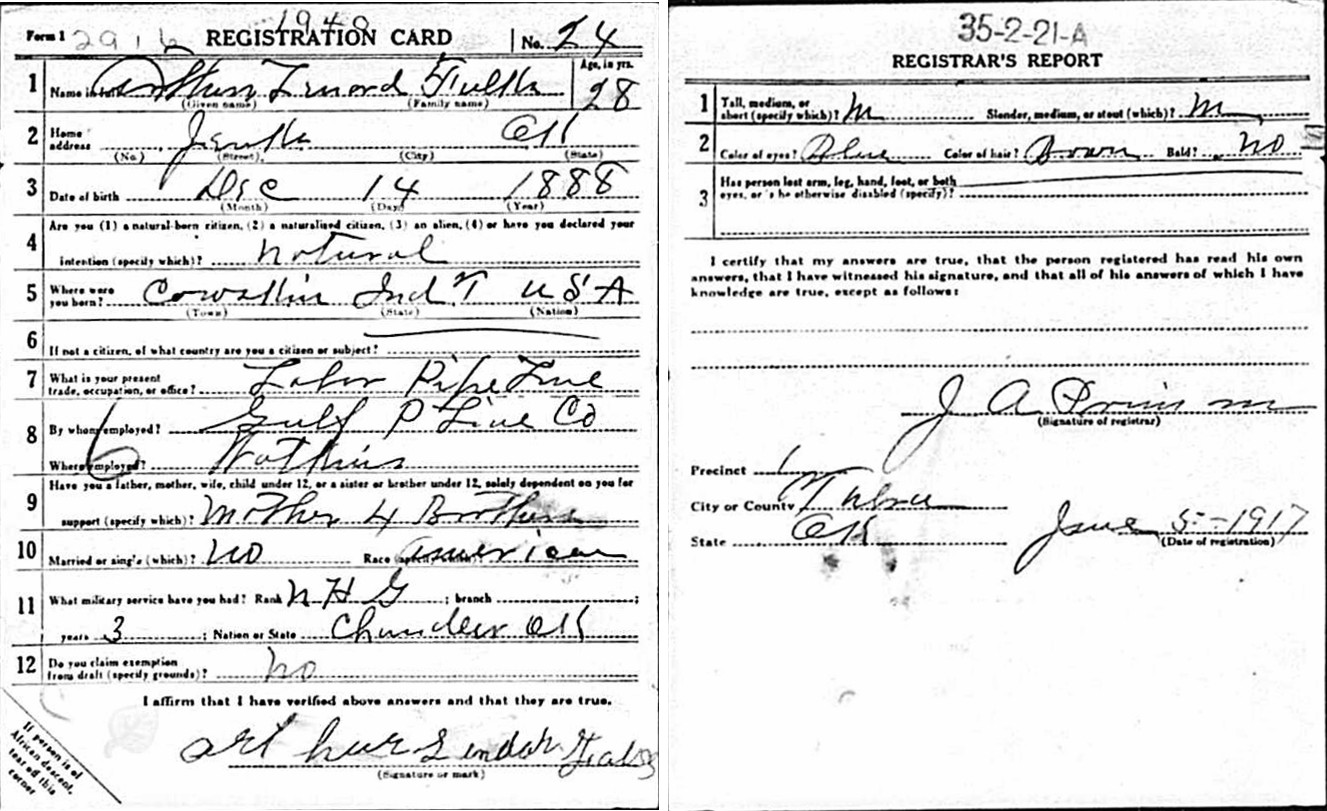 1948
Form 1 2916 REGISTRATION CARD No. 24
1 Name in full Arthur Lenord Age, in yrs. 28
(Given name) (Family name)
2 Home address Jenks Okl
(No.) (Street) (City) (State)
3 Date of birth Dec 14 1888
(Month) (Day) (Year)
4 Are you (1) a natural-born citizen, (2) a naturalized citizen, (3) an alien, (4) or have you declared your
intention (specify which)? Natural
5 Where were you born? Ind T USA
(Town) (State) (Nation)
6 If not a citizen, of what country are you a citizen or subject?
7 What is your present trade, occupation, or office? Labor Pipe Line
8 By whom employed? Gulf P Line Co
Where employed? Watkins
9 Have you a father, mother, wife, child under 12, or a sister or brother under 12, solely dependent on you for
support (specify which)? Mother 4 Brothers
10 Married or single (which)? No Race (specify which)? American
11 What military service have you had? Rank ; branch ;
years 3 ; Nation or State Chandler Okl
12 Do you claim exemption from draft (specify grounds)? No
I affirm that I have verified above answers and that they are true.
Arthur
(Signature or mark)
If person is of
African descent,
tear off this
corner
35-2-21-A
REGISTRAR'S REPORT
1 Tall, medium, or short (specify which)? M Slender, medium, or stout (which)? M
2 Color of eyes? Blue Color of hair? Brown Bald? No
3 Has person lost arm, leg, hand, foot, or both eyes, or is he otherwise disabled (specify)?
I certify that my answers are true, that the person registered has read his own
answers, that I have witnessed his signature, and that all of his answers of which I have
knowledge are true, except as follows:
J A
(Signature of registrar)
Precinct 1
City or County Tulsa
State Okl June 5-1917
(Date of registration)